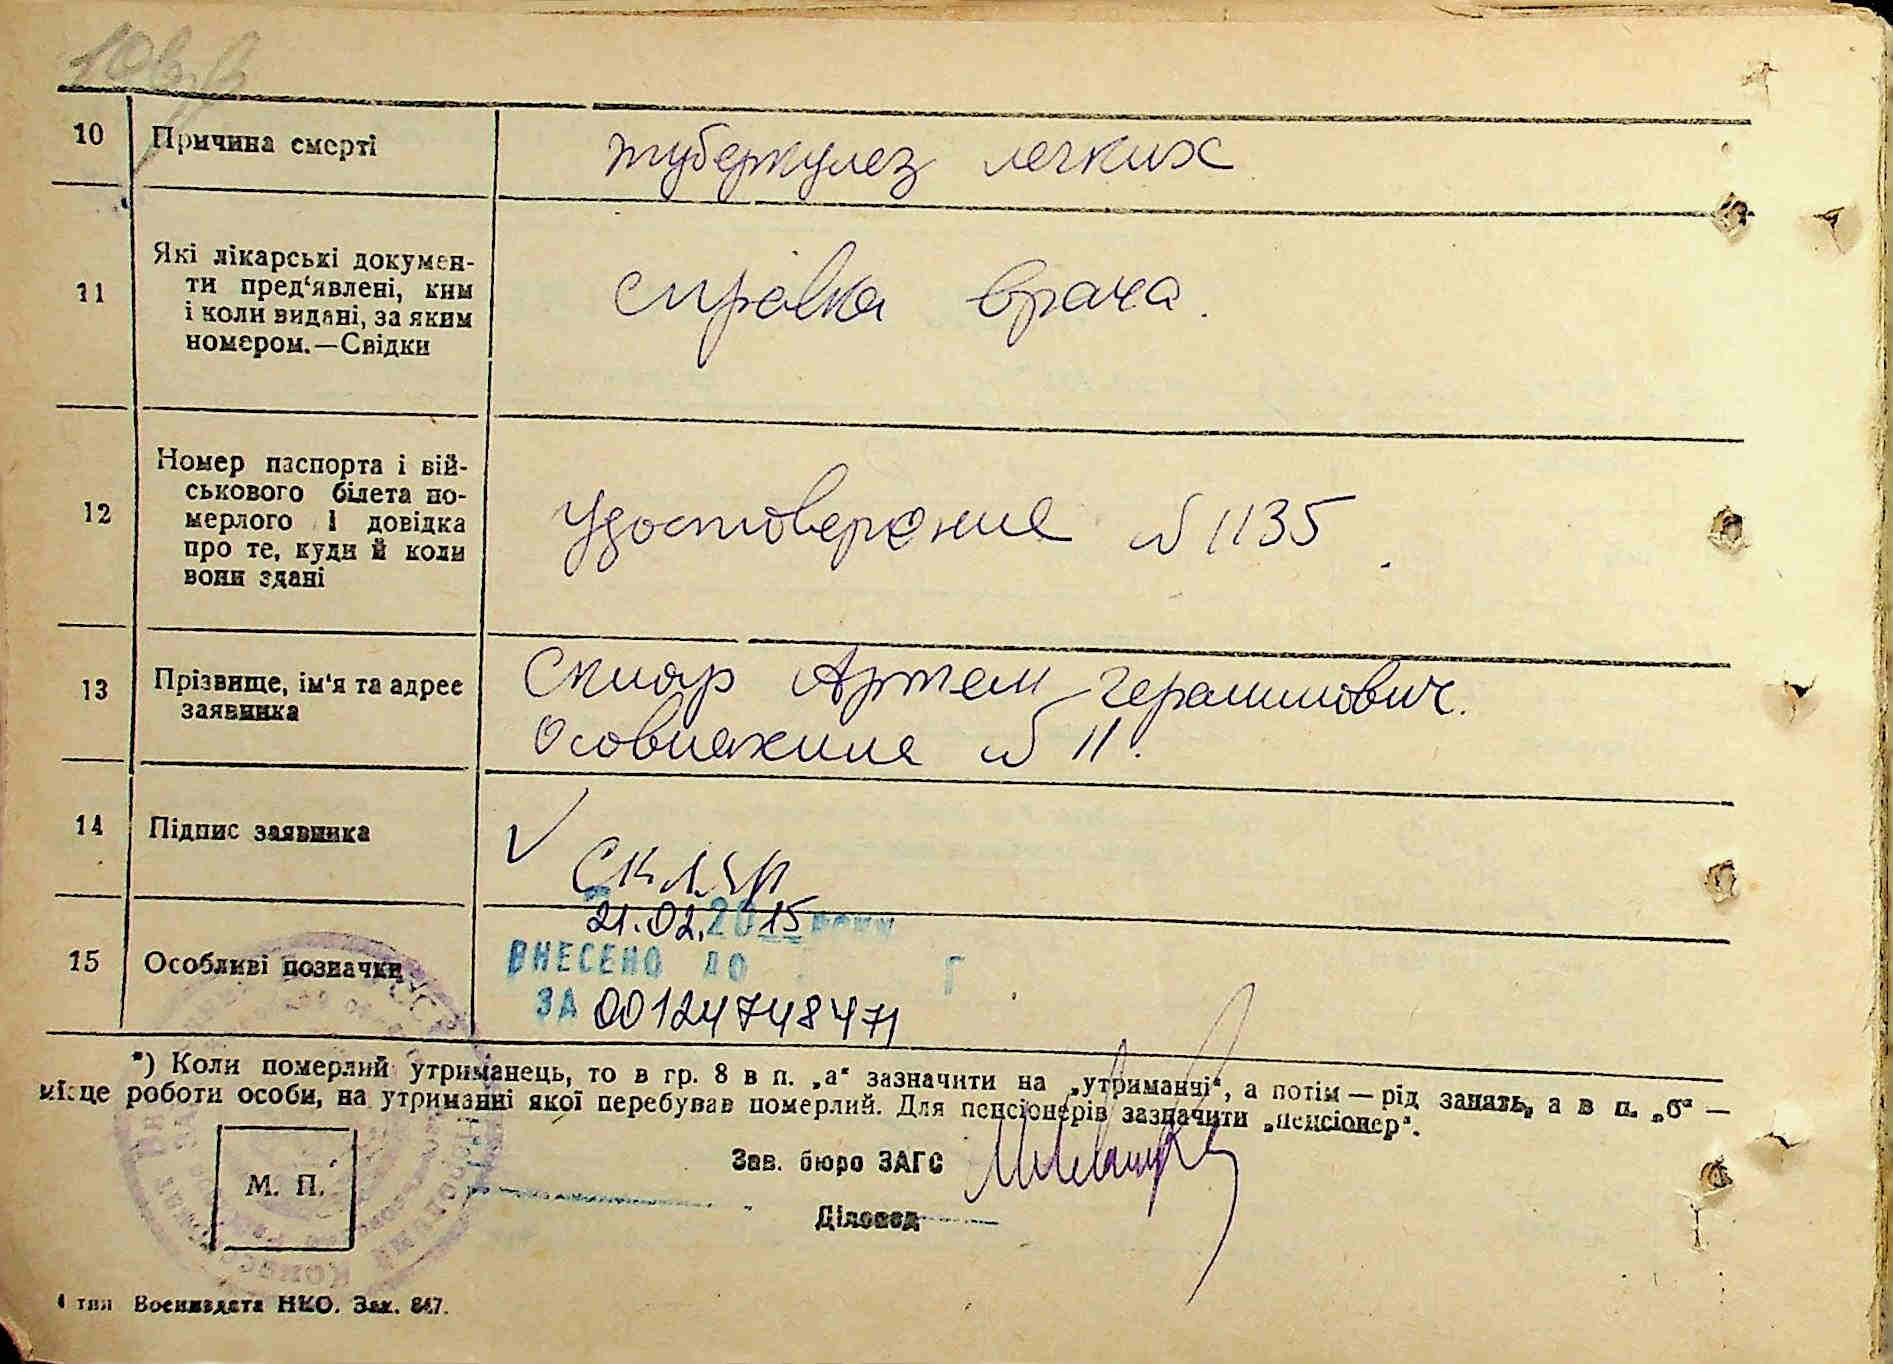 10
Причина смерті
туберкулез легких
11
Які лікарські докумен-
ти пред‘явлені, ким
і коли видані, за яким
номером.—Свідки
справка врача.
12
Номер паспорта і вій-
ськового білета по-
мерлого і довідка
про те, куди й коли
вони здані
удостоверение № 1135.
13
Прізвище, ім‘я та адрес
заявника
Скляр Артем Герасимович.
Осовиахима № 11.
14
Підпис заявника
Скляр
15
Особливі позначки
21.02.2015 року
ВНЕСЕНО ДО Г
ЗА 00124748471
*) Коли померлий утриманець, то в гр. 8 в п. „а“ зазначити на „утриманчі“, а потім — рід занять, а в п. „б“ —
місце роботи особи, на утриманні якої перебував померлий. Для пенсіонерів зазначити „пенсіонер“.
Зав. бюро ЗАГС
Діловод
М. П.
4 тип Воениздата НКО. Зак. 847.